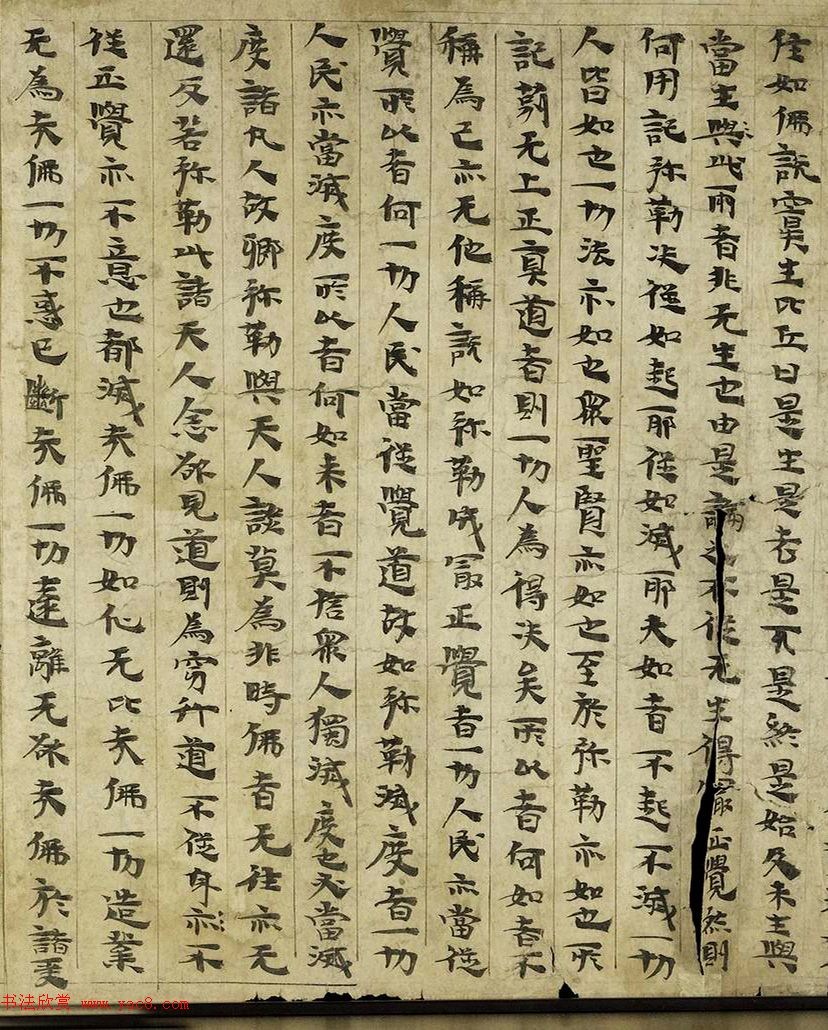 住如佛說實生比丘曰是生是老是死是終是始及未生與
當生與此兩者非无生也由是論之不從无生得最正覺然則
何用記弥勒决從如起耶從如滅耶夫如者不起不滅一切
人皆如也一切法亦如也眾聖賢亦如也至於弥勒亦如也所
記莂无上正真道者則一切人為得决矣所以者何如者不
稱為己亦无他稱說如弥勒成最正覺者一切人民亦當從
覺所以者何一切人民當從覺道故如弥勒滅度者一切
人民亦當滅度所以者何如来者不捨眾人獨滅度也必當滅
度諸凡人故卿弥勒與天人談莫為非時佛者无住亦无
還反若弥勒此諸天人念欲見道則為升道不從身亦不
從正覺亦不意也都滅夫佛一切如化无比夫佛一切造業
无為夫佛一切不惑已斷夫佛一切遠離无欲夫佛於諸受
书法欣赏 www.yac8.com